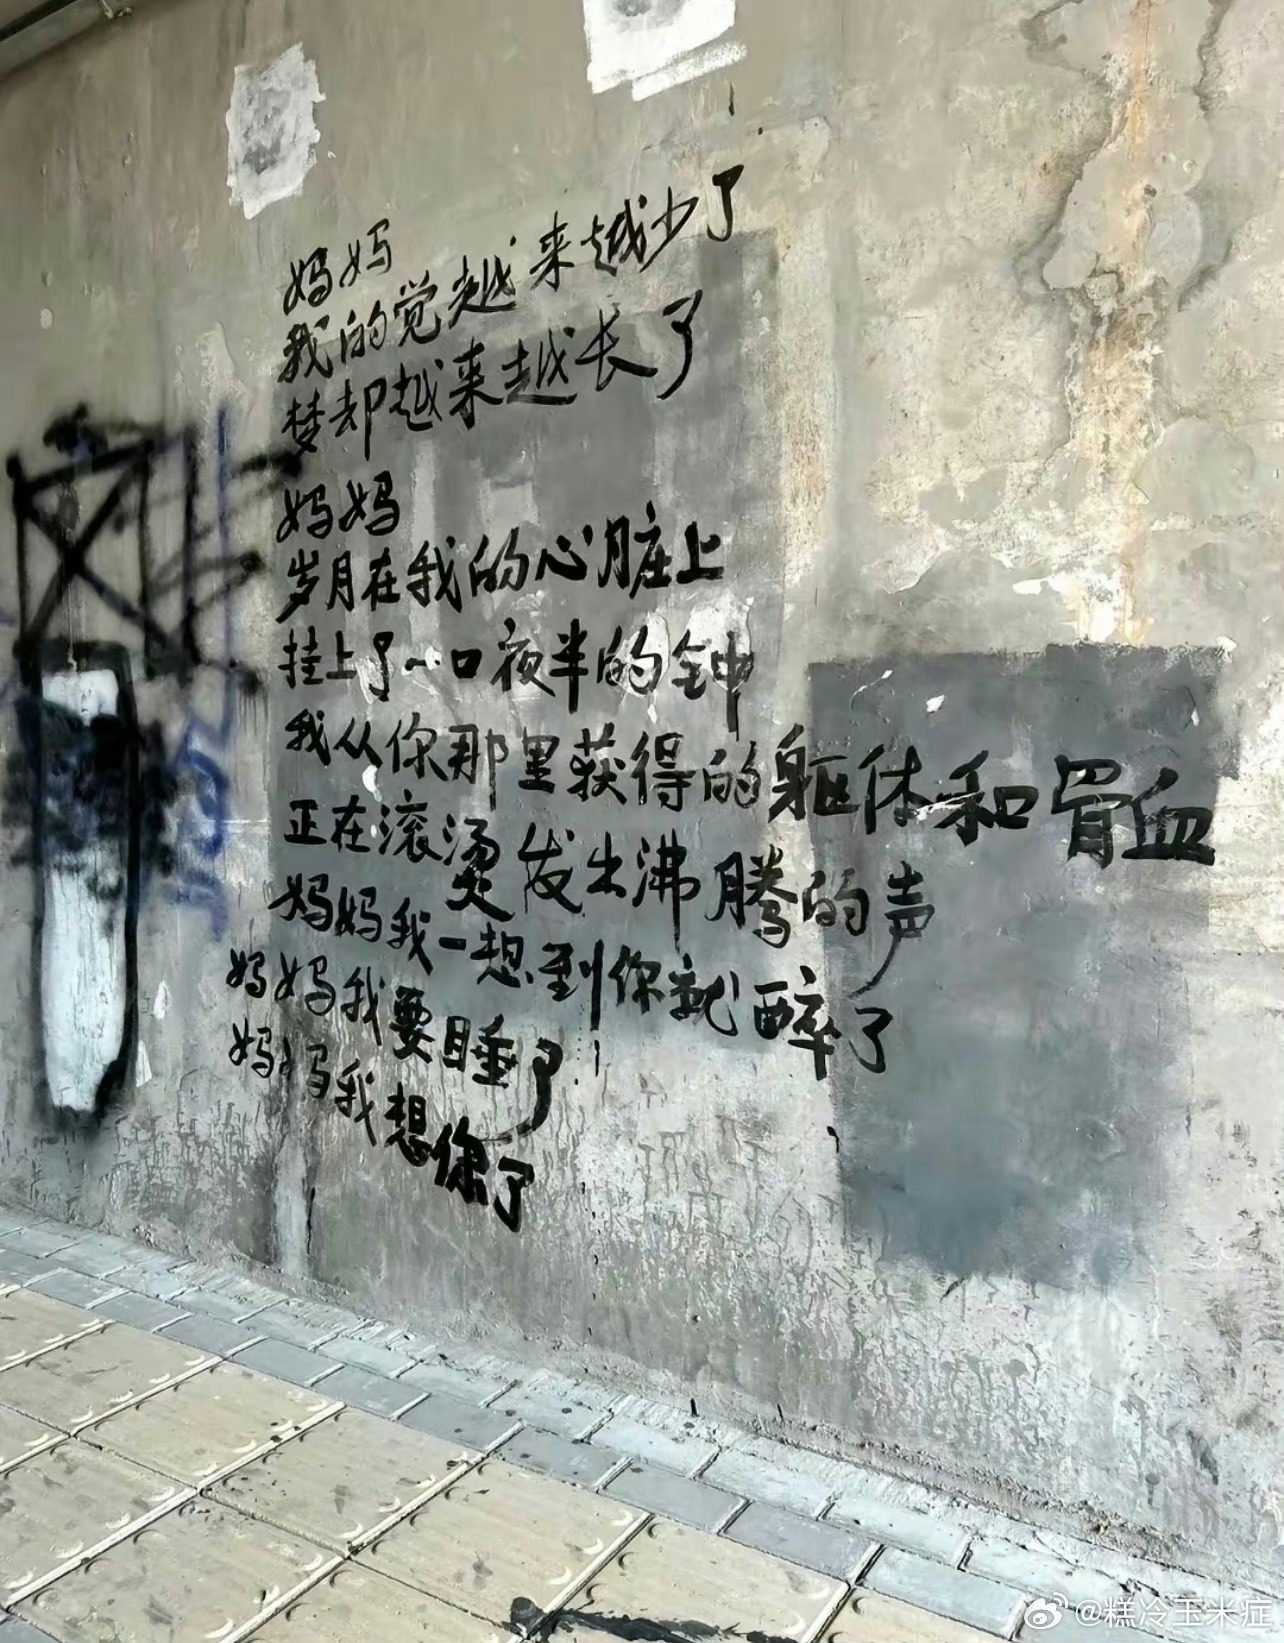 妈妈
我的觉越来越少了
梦却越来越长了
妈妈
岁月在我的心脏上
挂上了一口夜半的钟
我从你那里获得的躯体和骨血
正在滚烫发出沸腾的声
妈妈我一想到你就醉了
妈妈我要睡了
妈妈我想你了
@糕冷玉米症